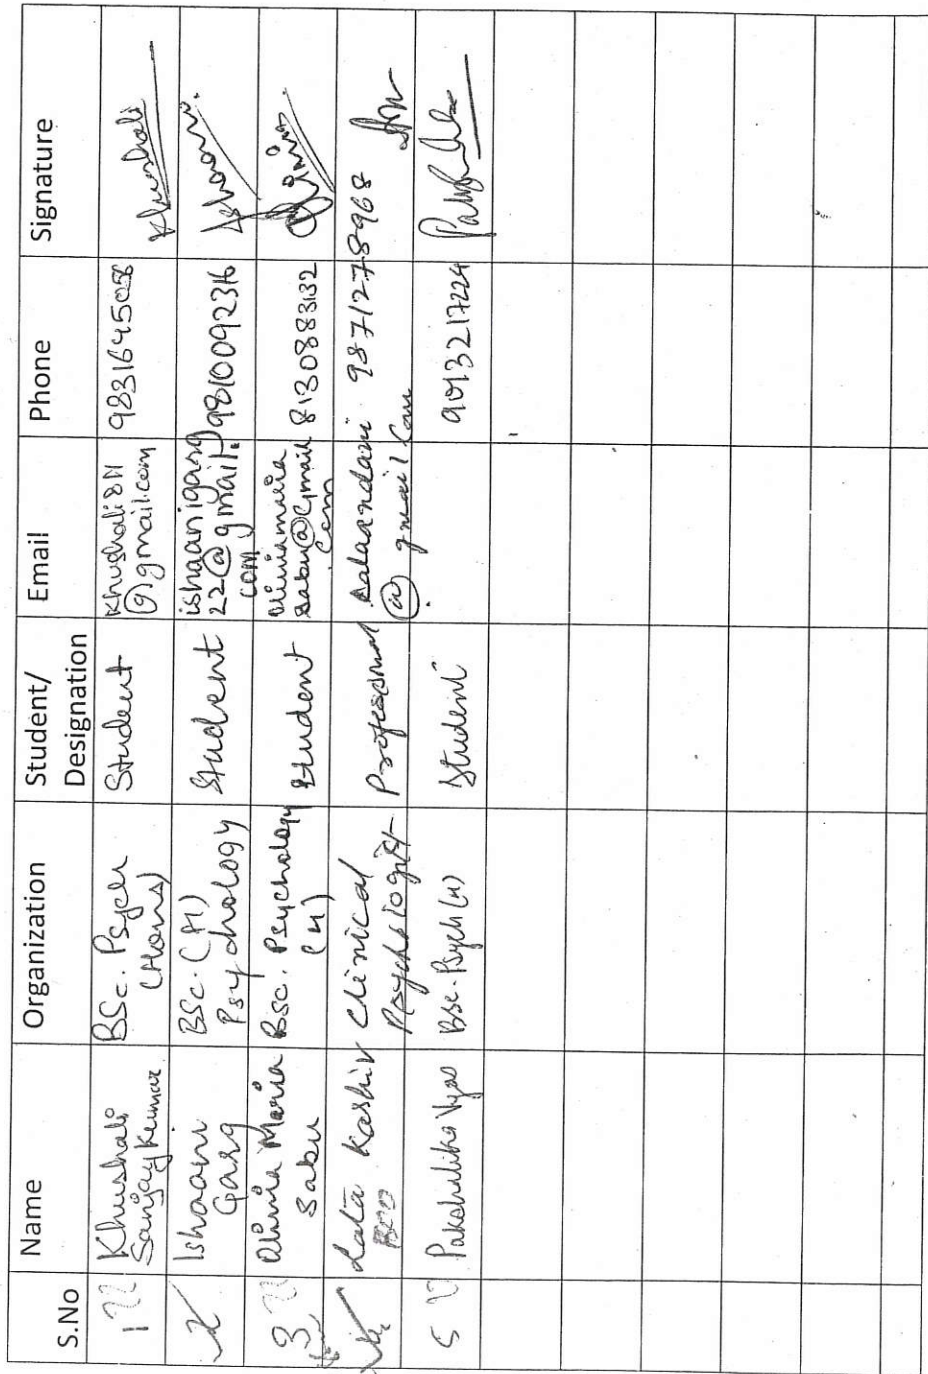 S.No Name Organization Student/ Designation Email Phone Signature
1 Khushali Sanjay Kumar BSc. Psych (Hons) Student khushali811@gmail.com 9831645058 Khushali
Ishaani Garg BSc. (H) Psychology Student ishaanigarg22@gmail.com 9810092316 Ishaani.
3 Maria Sabu BSc. Psychology (H) Student sabu@gmail.com 8130883132
Lata Clinical Psychologist Professional @gmail.com 9871278968
5 Vyas BSc. Psych (H) Student 9013217224